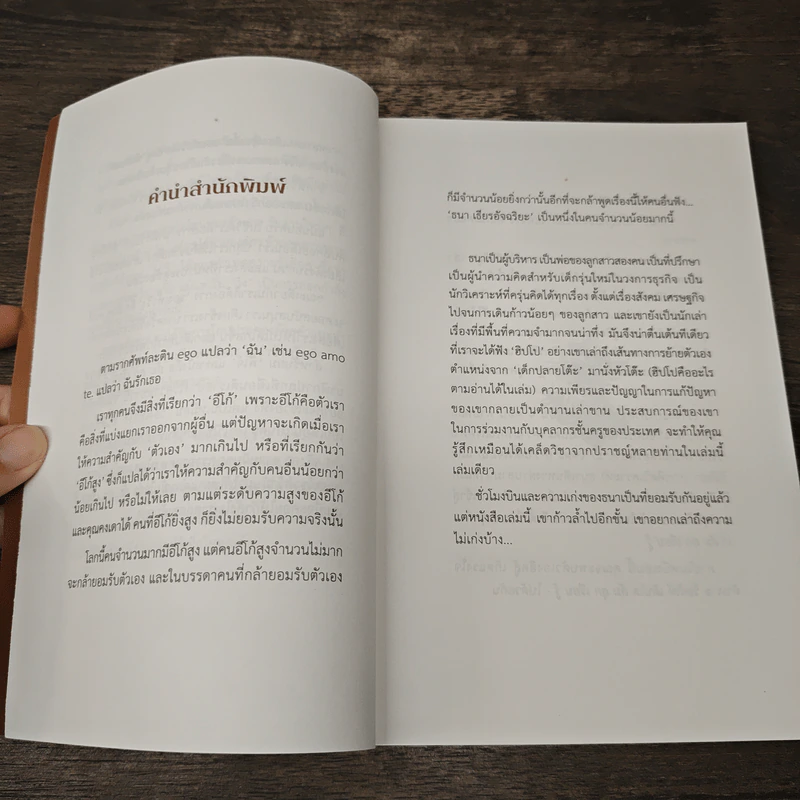 คำนำสำนักพิมพ์
ตามรากศัพท์ละติน ego แปลว่า ‘ฉัน’ เช่น ego amo
te. แปลว่า ฉันรักเธอ
เราทุกคนจึงมีสิ่งที่เรียกว่า ‘อีโก้’ เพราะอีโก้คือตัวเรา
คือสิ่งที่แบ่งแยกเราออกจากผู้อื่น แต่ปัญหาจะเกิดเมื่อเรา
ให้ความสำคัญกับ ‘ตัวเอง’ มากเกินไป หรือที่เรียกกันว่า
‘อีโก้สูง’ ซึ่งก็แปลได้ว่าเราให้ความสำคัญกับคนอื่นน้อยกว่า
น้อยเกินไป หรือไม่ให้เลย ตามแต่ระดับความสูงของอีโก้
และคุณคงเดาได้ คนที่อีโก้ยิ่งสูง ก็ยิ่งไม่ยอมรับความจริงนั้น
โลกนี้คนจำนวนมากมีอีโก้สูง แต่คนอีโก้สูงจำนวนไม่มาก
จะกล้ายอมรับตัวเอง และในบรรดาคนที่กล้ายอมรับตัวเอง
ก็มีจำนวนน้อยยิ่งกว่านั้นอีกที่จะกล้าพูดเรื่องนี้ให้คนอื่นฟัง...
‘ธนา เธียรอัจฉริยะ’ เป็นหนึ่งในคนจำนวนน้อยมากนี้
ธนาเป็นผู้บริหาร เป็นพ่อของลูกสาวสองคน เป็นที่ปรึกษา
เป็นผู้นำความคิดสำหรับเด็กรุ่นใหม่ในวงการธุรกิจ เป็น
นักวิเคราะห์ที่ครุ่นคิดได้ทุกเรื่อง ตั้งแต่เรื่องสังคม เศรษฐกิจ
ไปจนการเดินก้าวน้อยๆ ของลูกสาว และเขายังเป็นนักเล่า
เรื่องที่มีพื้นที่ความจำมากจนน่าทึ่ง มันจึงน่าตื่นเต้นทีเดียว
ที่เราจะได้ฟัง ‘ฮิปโป’ อย่างเขาเล่าถึงเส้นทางการย้ายตัวเอง
ตำแหน่งจาก ‘เด็กปลายโต๊ะ’ มานั่งหัวโต๊ะ (ฮิปโปคืออะไร
ตามอ่านได้ในเล่ม) ความเพียรและปัญญาในการแก้ปัญหา
ของเขากลายเป็นตำนานเล่าขาน ประสบการณ์ของเขา
ในการร่วมงานกับบุคลากรชั้นครูของประเทศ จะทำให้คุณ
รู้สึกเหมือนได้เคล็ดวิชาจากปราชญ์หลายท่านในเล่มนี้
เล่มเดียว
ชั่วโมงบินและความเก่งของธนาเป็นที่ยอมรับกันอยู่แล้ว
แต่หนังสือเล่มนี้ เขาก้าวล้ำไปอีกขั้น เขาอยากเล่าถึงความ
ไม่เก่งบ้าง...